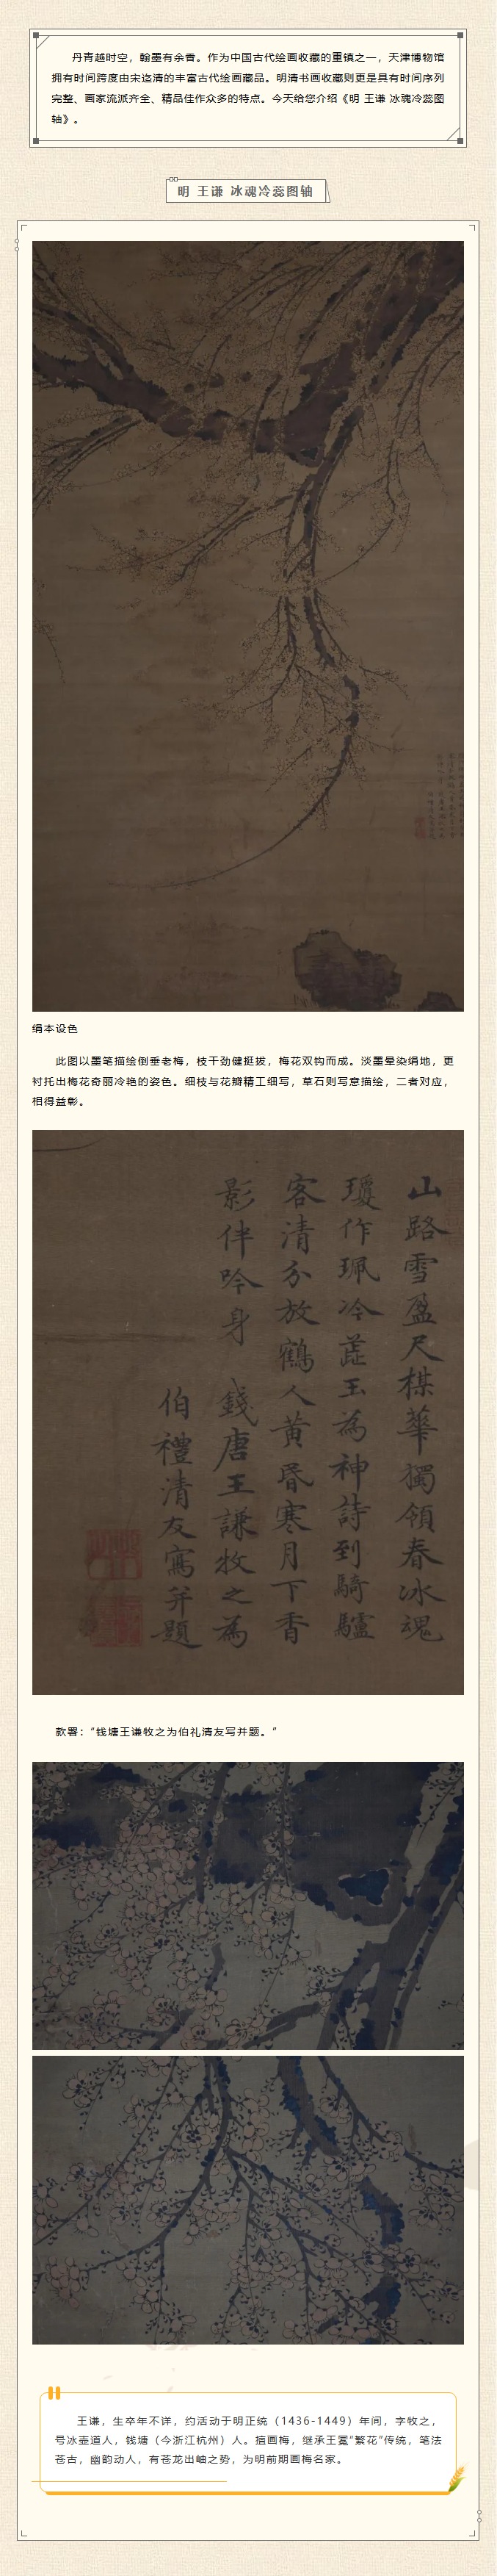 丹青越时空，翰墨有余香。作为中国古代绘画收藏的重镇之一，天津博物馆
拥有时间跨度由宋迄清的丰富古代绘画藏品。明清书画收藏则更是具有时间序列
完整、画家流派齐全、精品佳作众多的特点。今天给您介绍《明 王谦 冰魂冷蕊图
轴》。
明 王谦 冰魂冷蕊图轴
绢本设色
此图以墨笔描绘倒垂老梅，枝干劲健挺拔，梅花双钩而成。淡墨晕染绢地，更
衬托出梅花奇丽冷艳的姿色。细枝与花瓣精工细写，草石则写意描绘，二者对应，
相得益彰。
山路雪盈尺楳華獨領春冰魂
瓊作珮冷蕋玉為神詩到騎驢
客清分放鶴人黃昏寒月下香
影伴吟身 錢唐王謙牧之為
伯禮清友寫并題
款署：“钱塘王谦牧之为伯礼清友写并题。”
王谦，生卒年不详，约活动于明正统（1436-1449）年间，字牧之，
号冰壶道人，钱塘（今浙江杭州）人。擅画梅，继承王冕“繁花”传统，笔法
苍古，幽韵动人，有苍龙出岫之势，为明前期画梅名家。